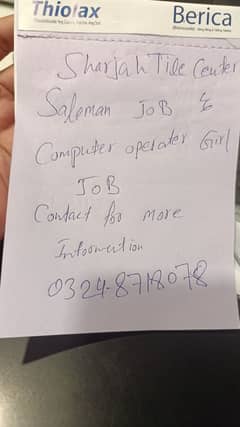 Thiolax
Berica
Sharjah Tile Center
Saleman JOB &
Computer operater Girl
JOB
Contact for more
Infoormation
0324-8718078